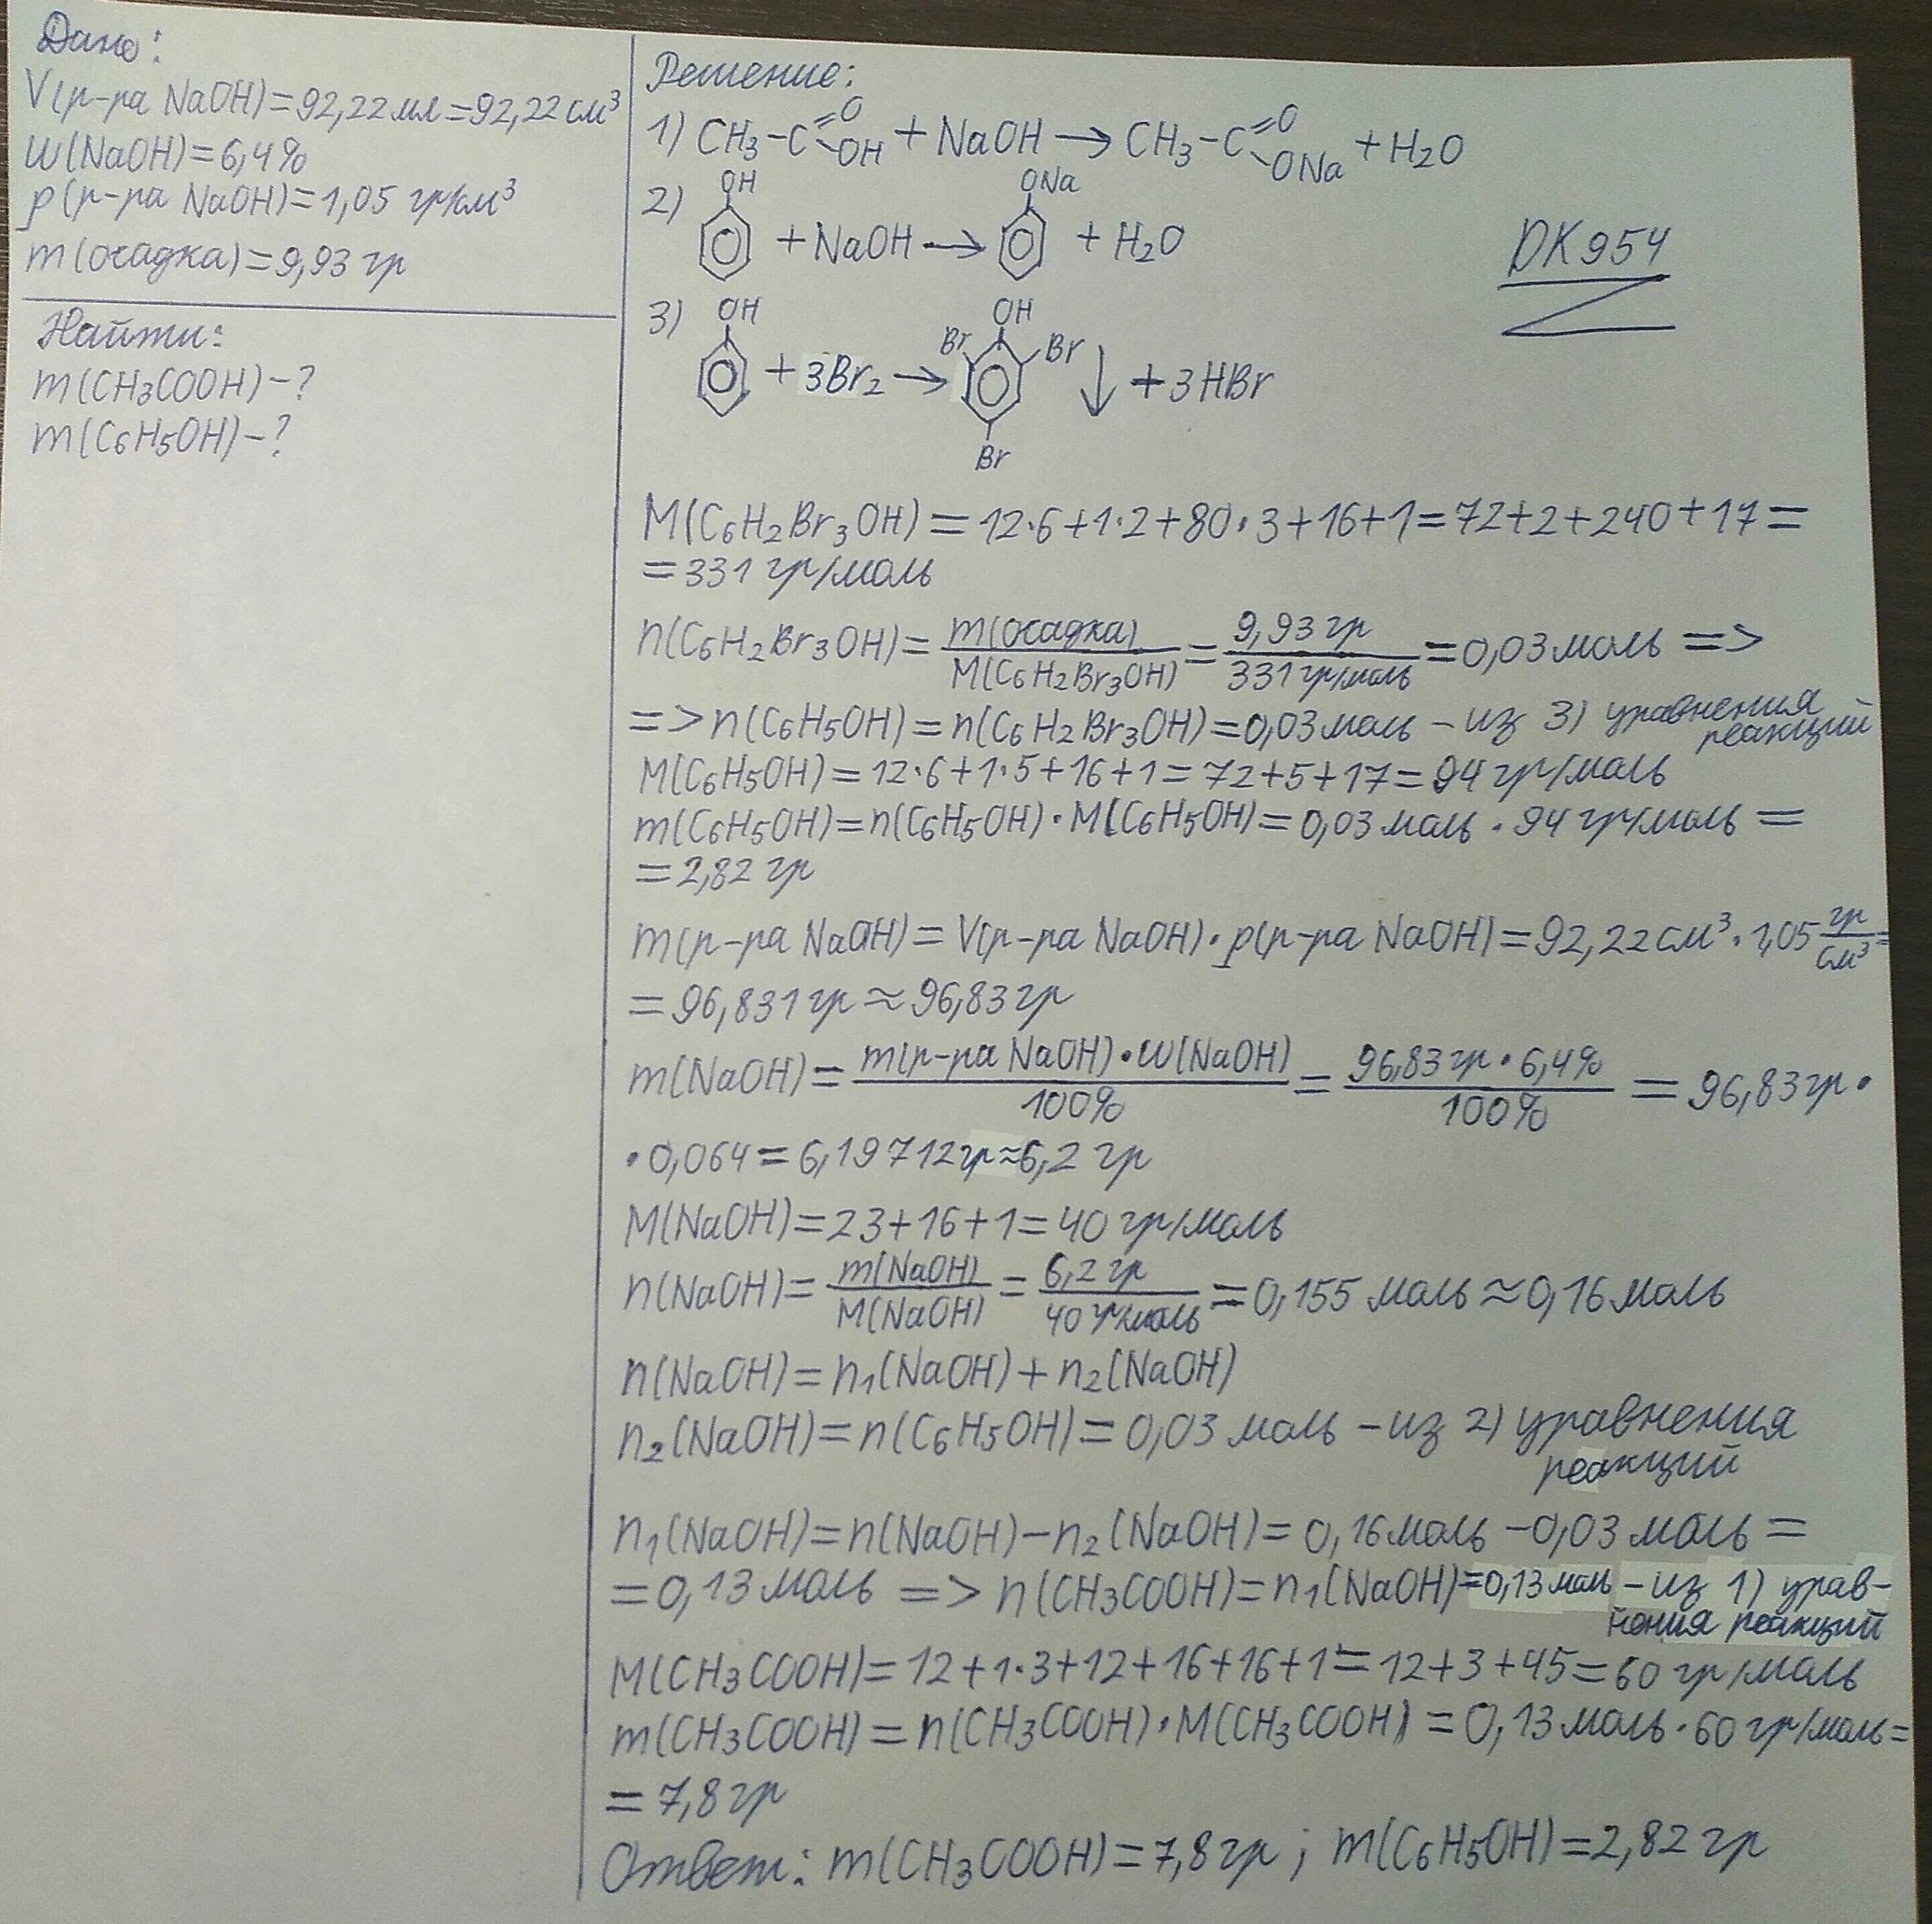 Дано:
V(р-ра NaOH)=92,22 мл=92,22 см³
w(NaOH)=6,4%
р(р-ра NaOH)=1,05 гр/см³
m(осадка)=9,93 гр
Найти:
m(CH₃COOH)-?
m(C₆H₅OH)-?
Решение:
1) CH₃-C=O-OH + NaOH → CH₃-C=O-ONa + H₂O
2) OH + NaOH → ONa + H₂O
3) OH + 3Br₂ → OH Br Br Br ↓ + 3HBr
DK954
M(C₆H₂Br₃OH)=12·6+1·2+80·3+16+1=72+2+240+17=
=331 гр/моль
n(C₆H₂Br₃OH)=m(осадка)/M(C₆H₂Br₃OH)=9,93 гр/331 гр/моль=0,03 моль =>
=> n(C₆H₅OH)=n(C₆H₂Br₃OH)=0,03 моль - из 3) уравнения
реакций
M(C₆H₅OH)=12·6+1·5+16+1=72+5+17=94 гр/моль
m(C₆H₅OH)=n(C₆H₅OH)·M(C₆H₅OH)=0,03 моль·94 гр/моль=
=2,82 гр
m(р-ра NaOH)=V(р-ра NaOH)·р(р-ра NaOH)=92,22 см³·1,05 гр/см³=
=96,831 гр≈96,83 гр
m(NaOH)=m(р-ра NaOH)·w(NaOH)/100%=96,83 гр·6,4%/100%=96,83 гр·
·0,064=6,19712 гр≈6,2 гр
M(NaOH)=23+16+1=40 гр/моль
n(NaOH)=m(NaOH)/M(NaOH)=6,2 гр/40 гр/моль=0,155 моль≈0,16 моль
n(NaOH)=n₁(NaOH)+n₂(NaOH)
n₂(NaOH)=n(C₆H₅OH)=0,03 моль - из 2) уравнения
реакций
n₁(NaOH)=n(NaOH)-n₂(NaOH)=0,16 моль-0,03 моль=
=0,13 моль => n(CH₃COOH)=n₁(NaOH)=0,13 моль - из 1) урав-
нения реакций
M(CH₃COOH)=12+1·3+12+16+16+1=12+3+45=60 гр/моль
m(CH₃COOH)=n(CH₃COOH)·M(CH₃COOH)=0,13 моль·60 гр/моль=
=7,8 гр
Ответ: m(CH₃COOH)=7,8 гр; m(C₆H₅OH)=2,82 гр